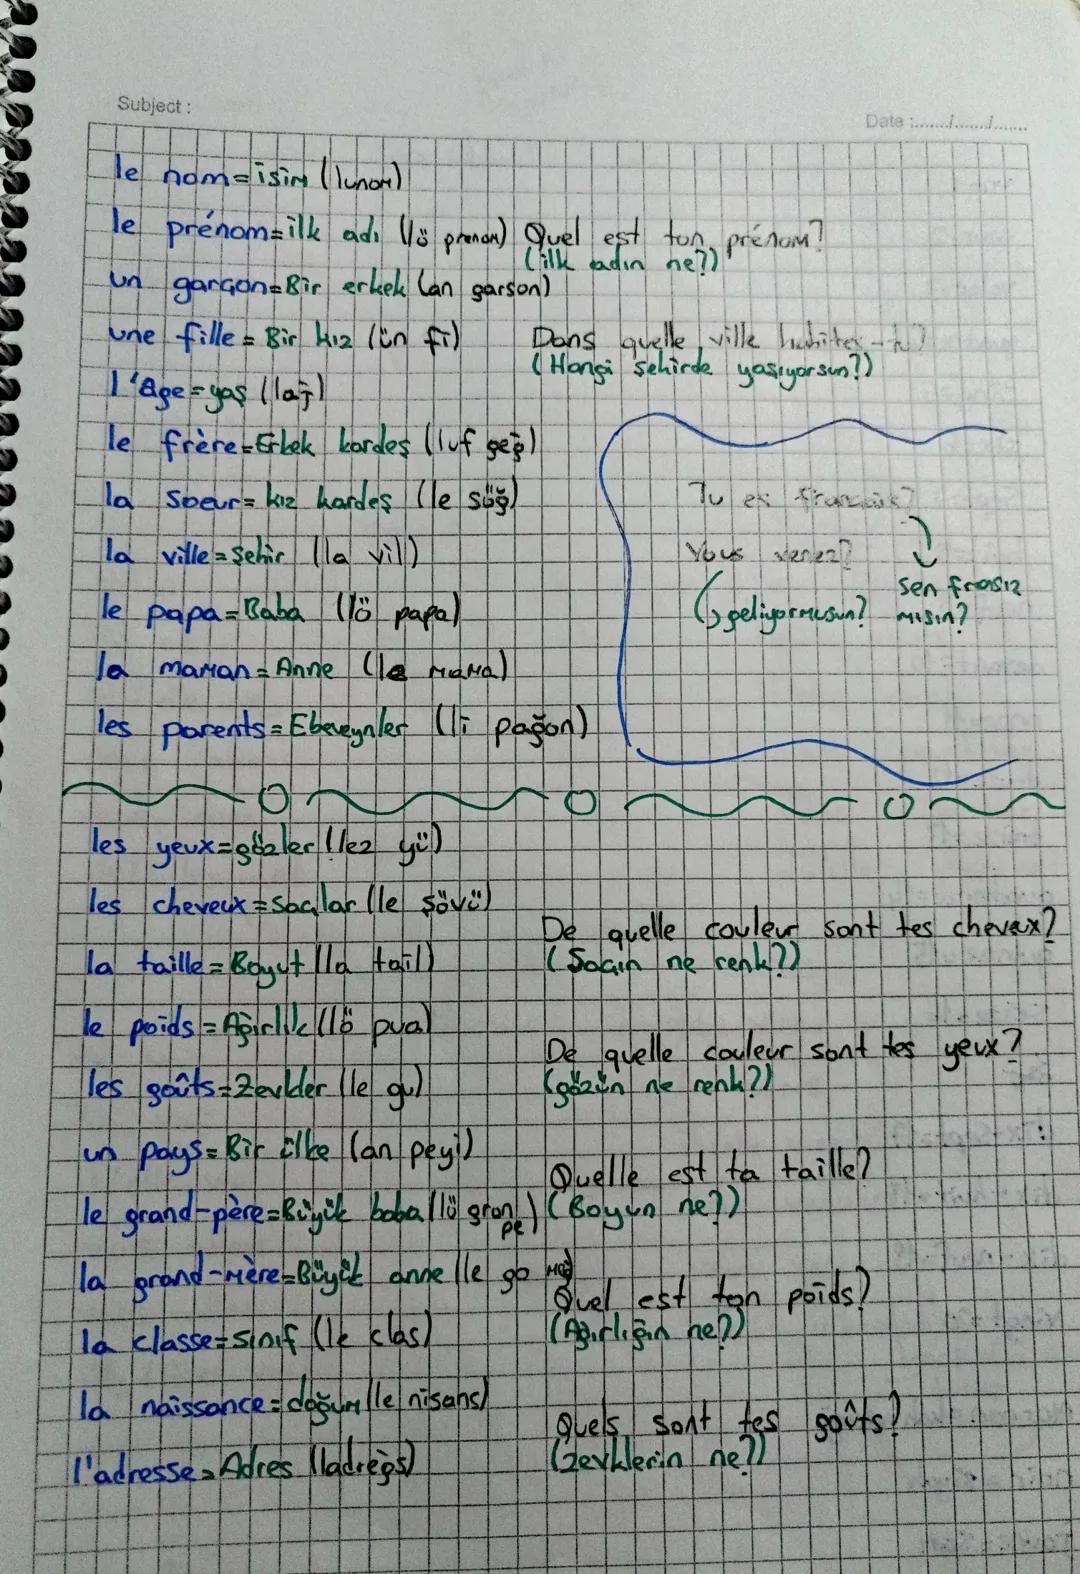 Subject :
Date :......./......./.......
le nom = isim (lunom)
le prénom = ilk adı (lö prenom) Quel est ton prénom?
(ilk adın ne?)
un garçon = Bir erkek (an garson)
une fille = Bir kız (ün fi)
Dans quelle ville habites-tu?
(Hangi şehirde yaşıyorsun?)
l'âge = yaş (laj)
le frère = Erkek kardeş
la soeur = kız kardeş (le söğ)
la ville = şehir (la vil)
le papa = Baba (lö papa)
la maman = Anne (le mama)
les parents = Ebeveynler (li pağon)
Tu es français?
Vous venez?
sen frasız
mısın?
geliyormusun?
les yeux = gözler (lez yü)
les cheveux = saçlar (le şövü)
la taille = Boyut (la tail)
De quelle couleur sont tes cheveux?
(Saçın ne renk?)
le poids = Ağirlik (lö pua)
les goûts = Zevkler (le gu)
De quelle couleur sont tes yeux?
(gözün ne renk?)
un pays = Bir ülke (an peyi)
le grand-père = Büyük baba (lö gran pe)
Quelle est ta taille?
(Boyun ne?)
la grand-mère = Büyük anne (le go
la classe = sınıf (le clas)
Quel est ton poids?
(Ağırlığın ne?)
la naissance = doğum (le nisans)
l'adresse = Adres (ladreğs)
Quels sont tes goûts?
(zevklerin ne?)